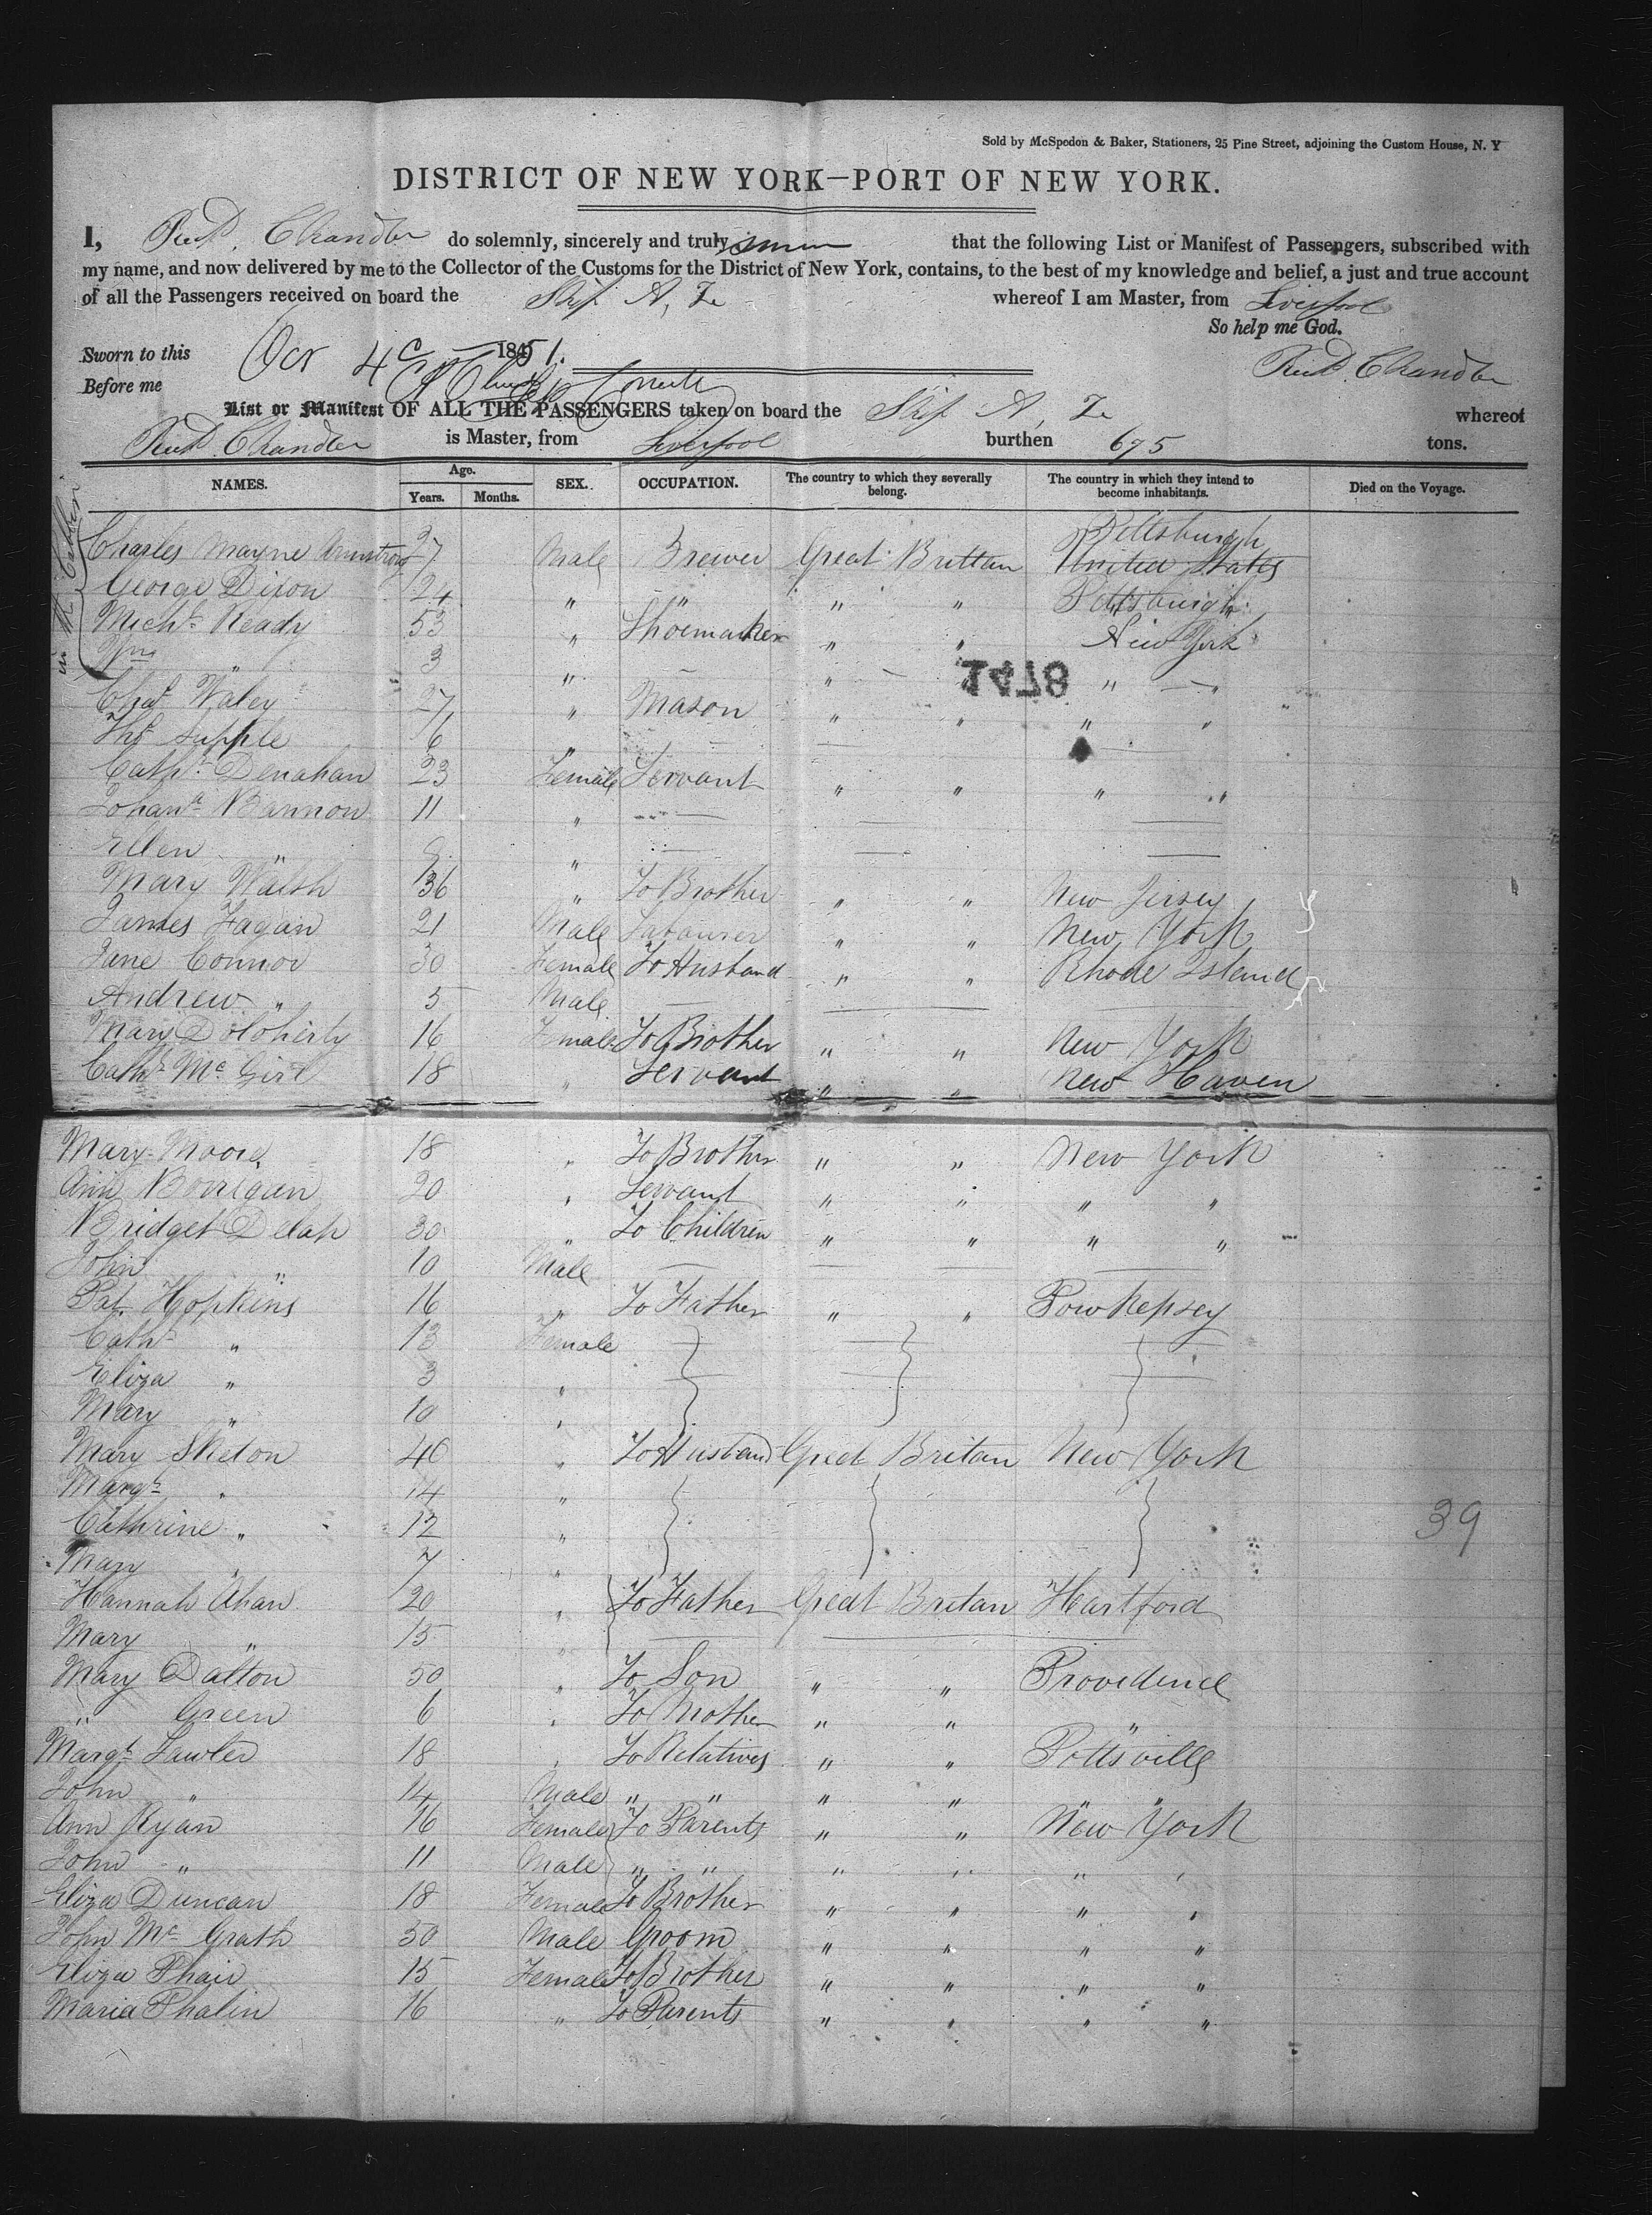 Sold by McSpedon & Baker, Stationers, 25 Pine Street, adjoining the Custom House, N. Y
DISTRICT OF NEW YORK—PORT OF NEW YORK.
I, Richd. Chandler do solemnly, sincerely and truly swear that the following List or Manifest of Passengers, subscribed with
my name, and now delivered by me to the Collector of the Customs for the District of New York, contains, to the best of my knowledge and belief, a just and true account
of all the Passengers received on board the Ship A, Z whereof I am Master, from Liverpool
So help me God.
Sworn to this Oct 4 1851. Richd. Chandler
Before me
List or Manifest OF ALL THE PASSENGERS taken on board the Ship A, Z whereof
Richd. Chandler is Master, from Liverpool burthen 675 tons.
NAMES. Age. Years. Months. SEX. OCCUPATION. The country to which they severally belong. The country in which they intend to become inhabitants. Died on the Voyage.
in the Cabin
Pittsburgh
Charles Mayne Armstrong 27 Male Brewer Great Brittan United States
George Dixon 24 " " " " Pittsburgh
Michl. Ready 53 " Shoemaker " " New York
Wm " 3 " — " — " —"
1478
Chas Waley 27 " Mason " " " "
Thos Supple 6 "
Cathe Denahan 23 Female Servant " " " "
Johana Bannon 11 " —
Ellen " "
Mary Walsh 36 " To Brother " " New Jersey
James Fagan 21 Male Labourer " " New York
Jane Connor 30 Female To Husband " " Rhode Island
Andrew " 5 Male —
Mary Doloherty 16 Female To Brother " " New York
Cathe Mc Girl 18 " Servant " " New Haven
Mary Moore 18 " To Brother " " New York
Ann Borrigan 20 " Servant " " " "
Bridget Delah 30 " To Children " " " "
John " 10 Male —
Pat. Hopkins 16 " To Father " " Powkepsey
Cathe " 13 Female
Eliza " 3 "
Mary " 10 "
Mary Skelon 40 " To Husband Great Britan New York
Margt " 14 "
Cathrine " 12 " 39
Mary " 7 "
Hannah Ahan 20 " To Father Great Britan Hartford
Mary " 15 "
Mary Dalton 50 " To Son " " Providence
" Green 6 " To Mother " " "
Margt Lawler 18 " To Relatives " " Pottsville
John " 14 Male " " " " "
Ann Ryan 16 Female To Parents " " New York
John " 11 Male " " " " " "
Eliza Duncan 18 Female To Brother " " " "
John Mc Grath 30 Male Groom " " " "
Eliza Phair 15 Female To Brother " " " "
Maria Phalin 16 " To Parents " " " "